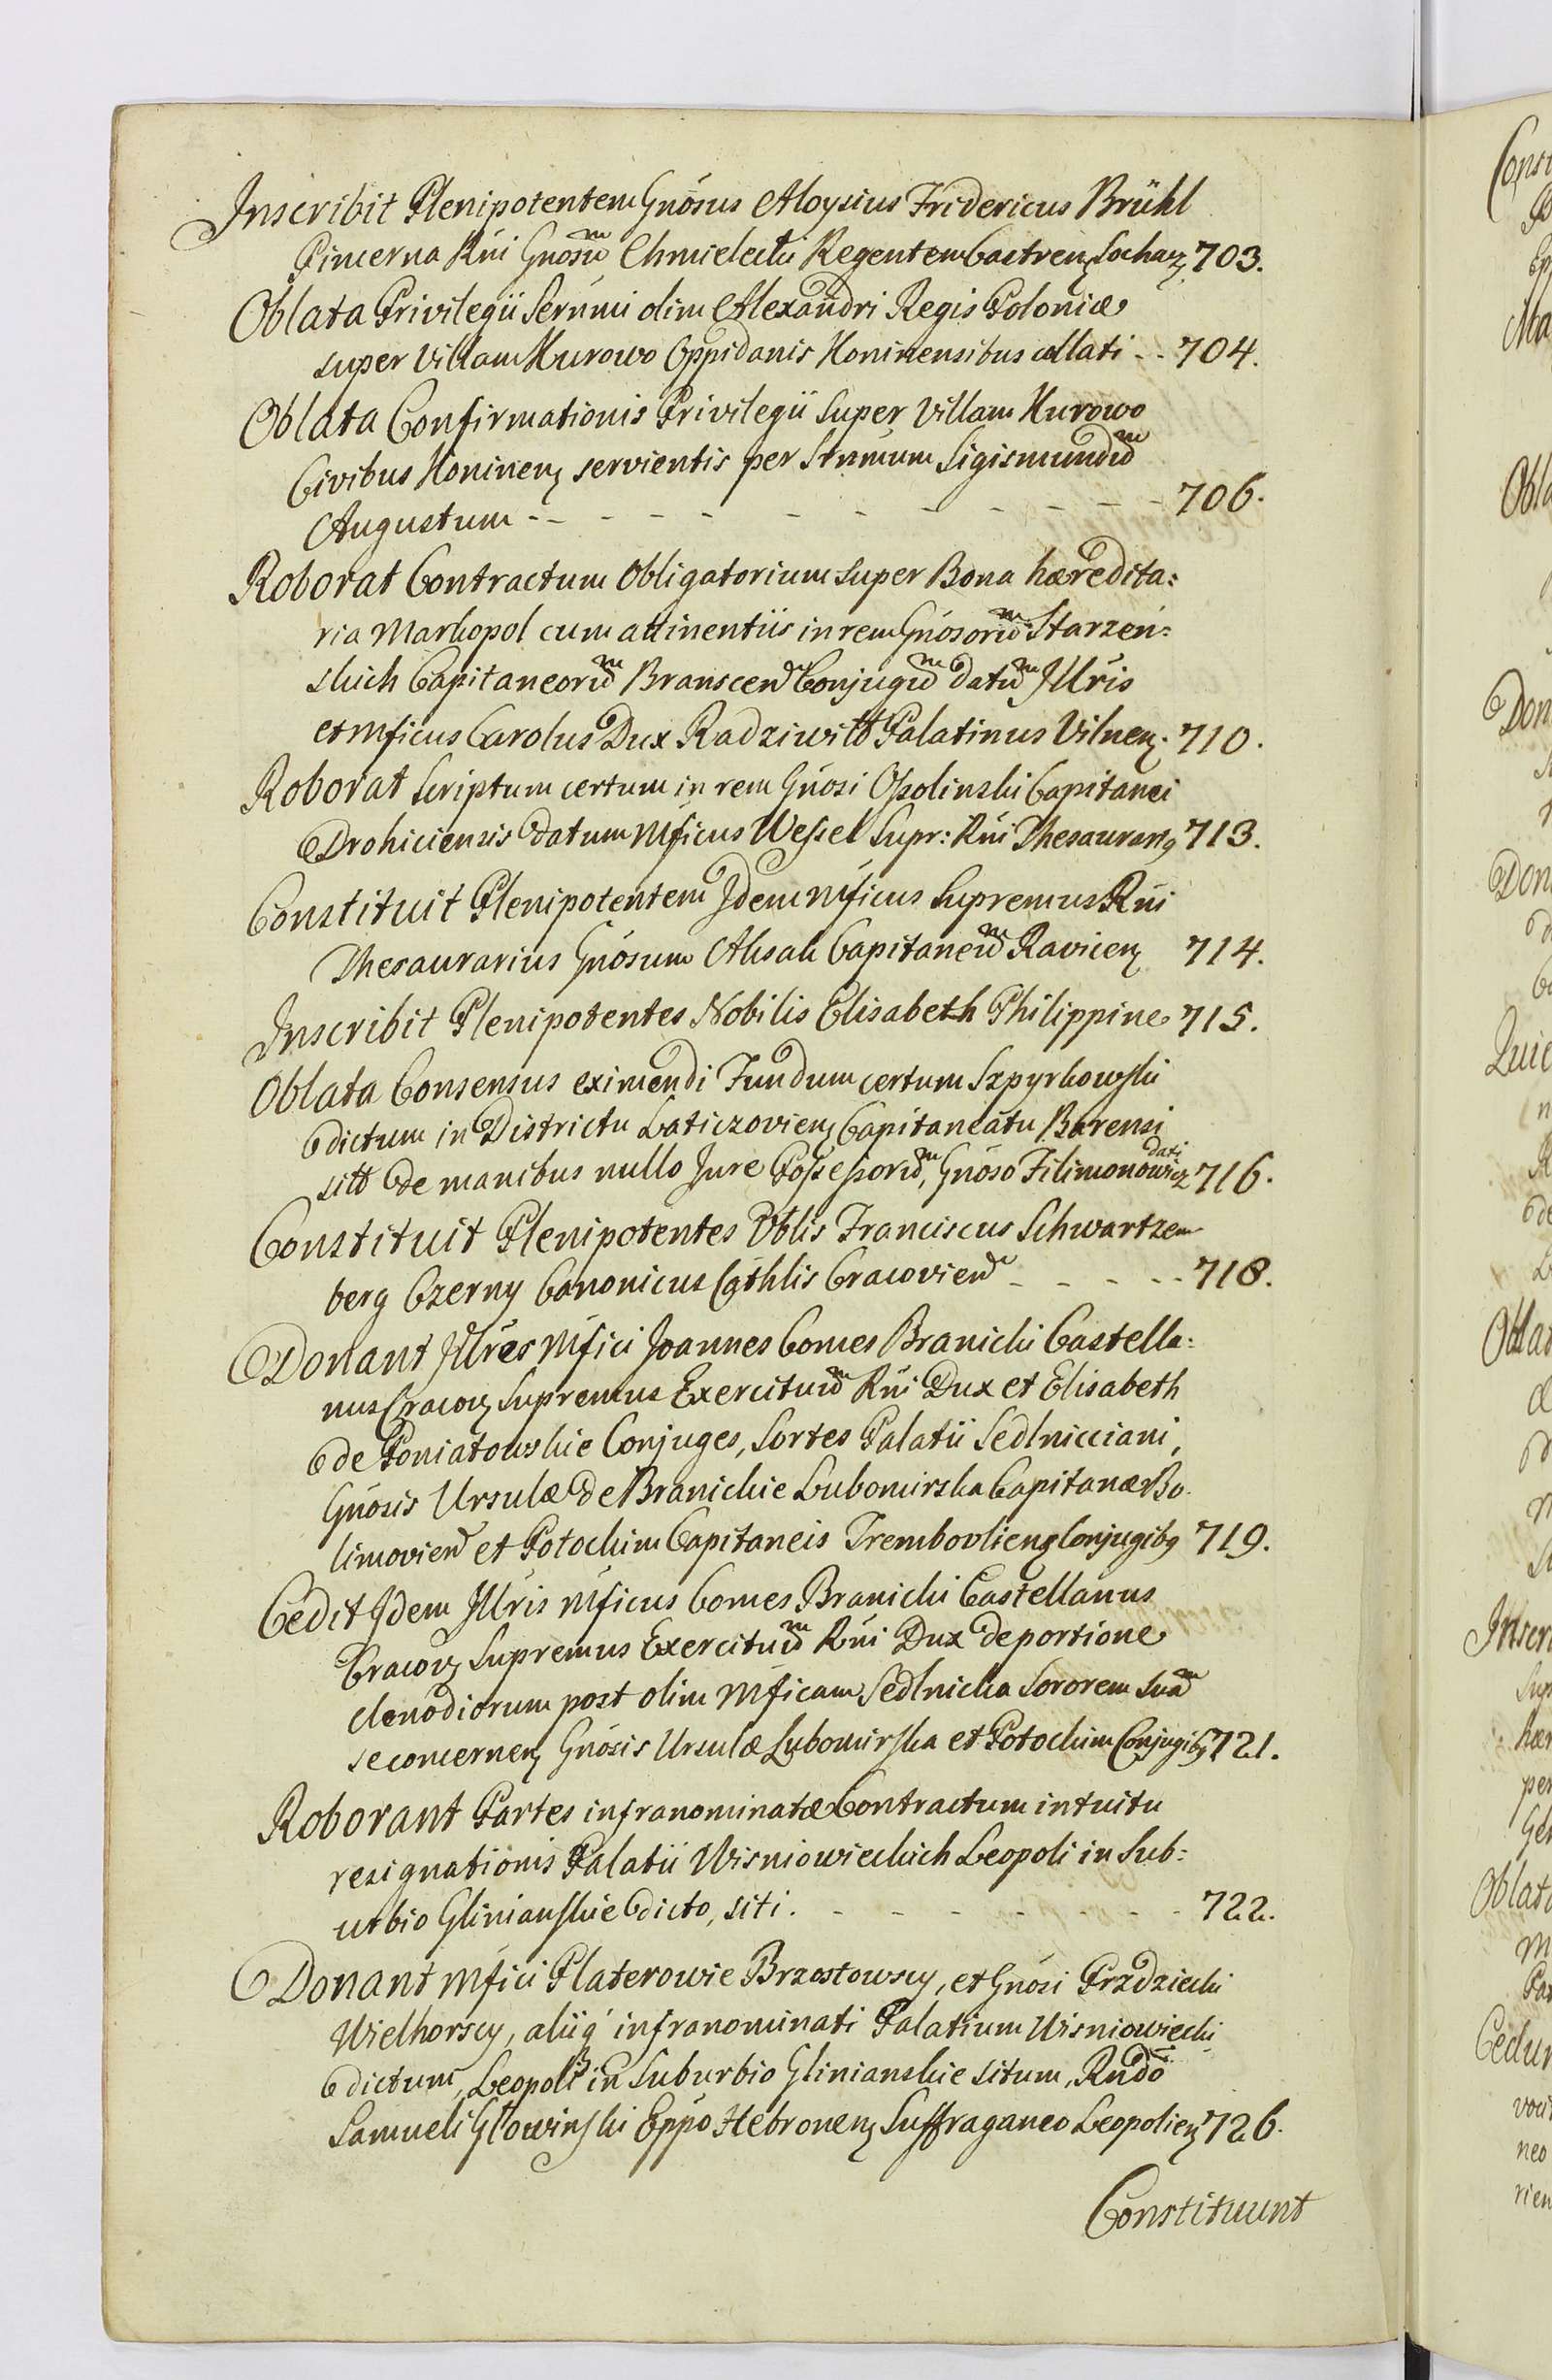 Inscribit Plenipotentem Gnosus Aloysius Fridericus Brühl
Pincerna Rni Gnosum Chmielecki Regentem Castrens Sochaz 703.
Oblata Privilegii Sernmi olim Alexandri Regis Poloniæ
super Villam Kurowo Oppidanis Koninensibus collati - - 704.
Oblata Confirmationis Privilegii super Villam Kurowo
Civibus Koninenz servientis per Srnmum Sigismundum
Augustum - - - - - - - - - - - 706.
Roborat Contractum Obligatorium super Bona hæredita:
ria Markopol cum attinentiis in rem Gnosorum Starzen:
skich Capitaneorum Branscen Conjugum datum Jllris
et Mficus Carolus Dux Radziwiłł Palatinus Vilnenz. 710.
Roborat Scriptum certum in rem Gnosi Ossolinski Capitanei
Drohiciensis datum Mficus Wessel Supr: Rni Thesaurarig 713.
Constituit Plenipotentem Jdem Mficus Supremus Rni
Thesaurarius Gnosum Aksak Capitaneum Ravicenz 714.
Inscribit Plenipotentes Nobilis Elisabeth Philippine 715.
Oblata Consensus eximendi Fundum certum Szpyrkowski
dictum in Districtu Laticzovienz Capitaneatu Barensi
dati
sitt de manibus nullo Jure Possessorum, Gnoso Filimonowicz 716.
Constituit Plenipotentes Vblis Franciscus Schwartzem
berg Czerny Canonicus Cathlis Cracovien - - - - - 718.
Donant Jllres Mfici Joannes Comes Branicki Castella:
nus Cracovz Supremus Exercituum Rni Dux et Elisabeth
de Poniatowskie Conjuges, Sortes Palatii Sedlnicciani,
Gnosis Ursulæ de Branickie Lubomirska Capitanæ Bo.
limovien et Potockim Capitaneis Trembovlienz Conjugibg 719.
Cedit Jdem Jllris Mficus Comes Branicki Castellanus
Cracovz Supremus Exercituum Rni Dux de portione
clenodiorum post olim Mficam Sedlnicka Sororem suam
se concernenz Gnosis Ursulæ Lubomirska et Potockim Conjugibg 721.
Roborant Partes infranominatæ Contractum intuitu
resignationis Palatii Wisniowieckich Leopoli in Sub:
urbio Glinianskie dicto, siti. - - - - - - - 722.
Donant Mfici Platerowie Brzostowscy, et Gnosi Przdziecki
Wielhorscy, aliiq infranominati Palatium Wisniowiecki
dictum, Leopoli in Suburbio Glinianskie situm, Rndo
Samueli Głowinski Eppo Hebronenz Suffraganeo Leopolienz 726.
Constituunt